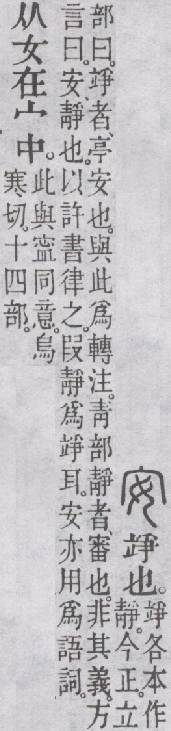 安 竫也。
竫各本作
靜。今正。立
部曰。竫者、亭安也。與此爲轉注。靑部靜者、審也。非其義。方
言曰。安、靜也。以許書律之。叚靜爲竫耳。安亦用爲語詞。
从女在宀中。
此與寍同意。烏
寒切。十四部。